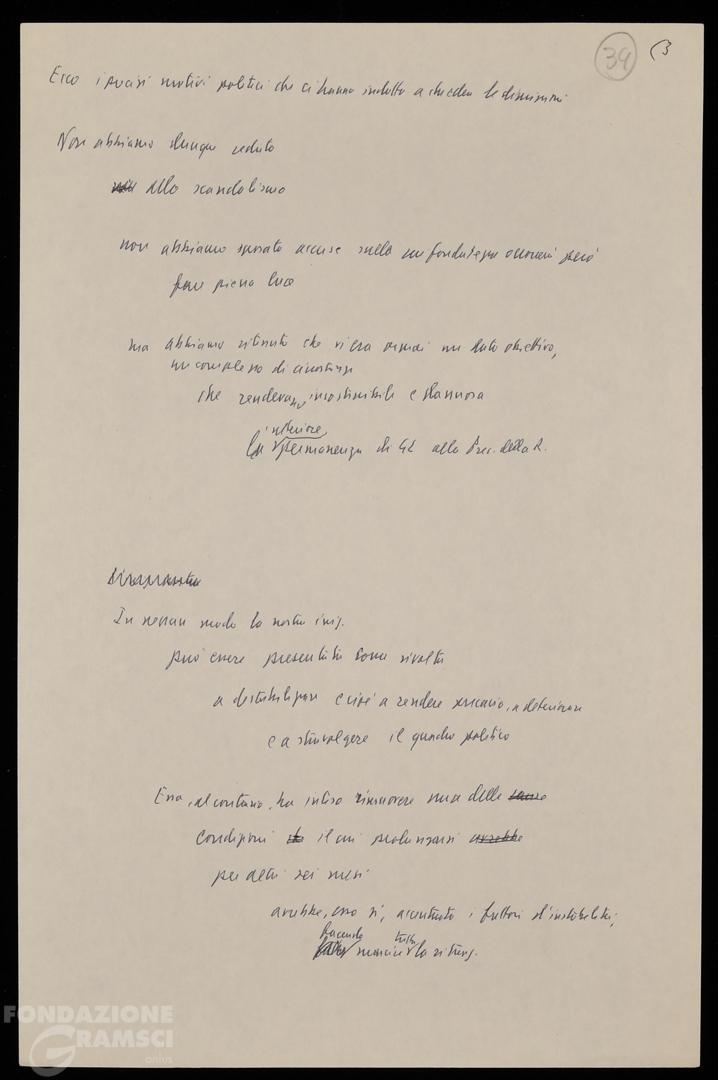 39 (3
Ecco i precisi motivi politici che ci hanno indotto a chiedere le dimissioni
Non abbiamo dunque ceduto
non allo scandalismo
non abbiamo sposato accuse sulla cui fondatezza occorrerà però
fare piena luce
ma abbiamo ritenuto che vi era ormai un dato obiettivo,
un complesso di circostanze
che rendevano insostenibile e dannosa
ulteriore
la permanenza di GL alla Pres. della R.
In nessun modo la nostra iniz.
può essere presentata come rivolta
a destabilizzare e cioè a rendere precario, a deteriorare
e a stravolgere il quadro politico
Essa, al contrario, ha inteso rimuovere una delle cause
condizioni che il cui prolungarsi avrebbe
per altri sei mesi
avrebbe, esso sì, accentuato i fattori d'instabilità;
facendo tutta
marcire la situaz.
FONDAZIONE
GRAMSCI
onlus